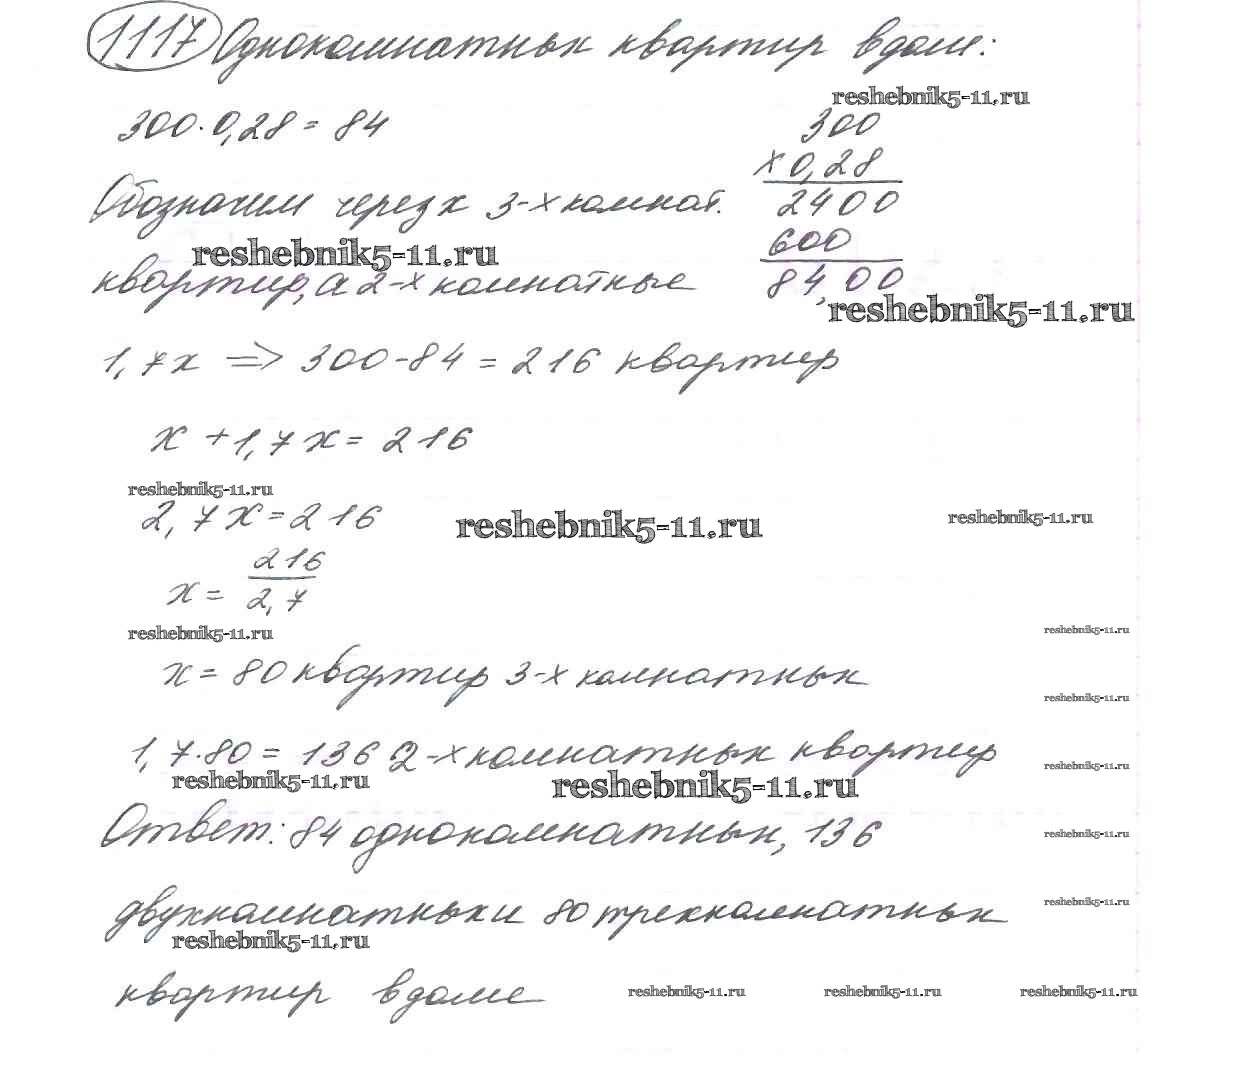 1117 Однокомнатных квартир в доме:
reshebnik5-11.ru
300·0,28 = 84
300
× 0,28
2400
600
8400
Обозначим через х 3-х комнат.
reshebnik5-11.ru
квартир, а 2-х комнатные
reshebnik5-11.ru
1,7х => 300-84 = 216 квартир
х + 1,7х = 216
reshebnik5-11.ru
2,7х = 216
reshebnik5-11.ru
reshebnik5-11.ru
х = 216/2,7
reshebnik5-11.ru
reshebnik5-11.ru
х = 80 квартир 3-х комнатных
reshebnik5-11.ru
1,7·80 = 136 2-х комнатных квартир
reshebnik5-11.ru
reshebnik5-11.ru
reshebnik5-11.ru
Ответ: 84 однокомнатных, 136
reshebnik5-11.ru
двухкомнатных и 80 трехкомнатных
reshebnik5-11.ru
reshebnik5-11.ru
квартир в доме
reshebnik5-11.ru
reshebnik5-11.ru
reshebnik5-11.ru